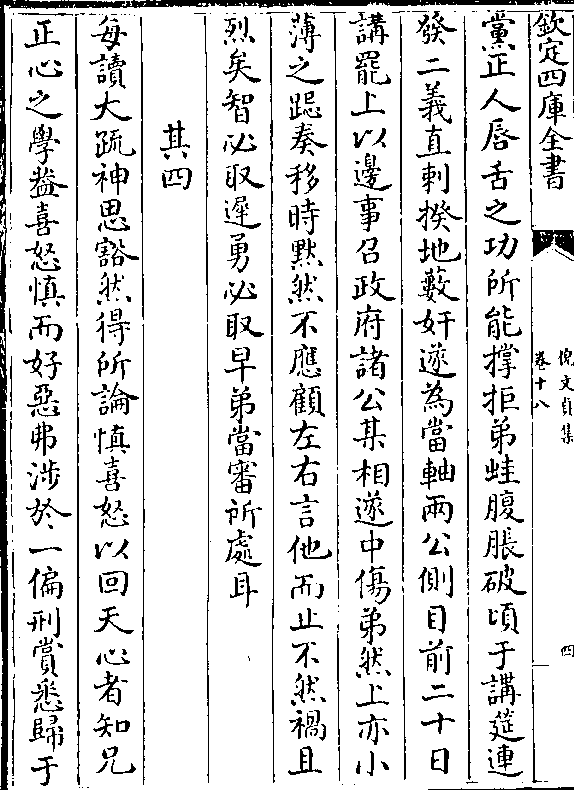 欽定四庫全書
倪文貞集
卷十八
四
黨正人唇舌之功所能撐拒弟蛙腹脹破頃于講筵連
發二義直刺揆地藪奸遂為當軸兩公側目前二十日
講罷上以邊事召政府諸公某相遂中傷弟然上亦小
薄之跽奏移時黙然不應顧左右言他而止不然禍且
烈矣智必取遲勇必取早弟當審所處耳
其四
每讀大疏神思豁然得所論慎喜怒以回天心者知兄
正心之學葢喜怒慎而好惡弗涉於一偏刑賞悉歸于